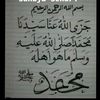 بسم الله الرحمن الرحيم
جَزَى اللهُ عَنَّا سَيِّدَنَا
مُحَمَّدًا صَلَّى اللهُ عَلَيْهِ
وَسَلَّمَ مَا هُوَ أَهْلُهُ
محمد